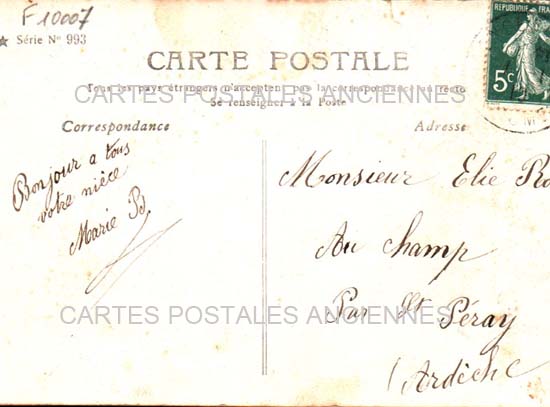 F10007
★ Série Nº 993
CARTE POSTALE
Tous les pays étrangers n'acceptent pas la correspondance au recto
Se renseigner à la Poste
CARTES POSTALES ANCIENNES
Correspondance
Adresse
REPUBLIQUE FRA
5c
Bonjour a tous
votre nièce
Marie B.
Monsieur Elie Ro
Au champ
Par St Péray
CARTES POSTALES ANCIENNES
Ardèche